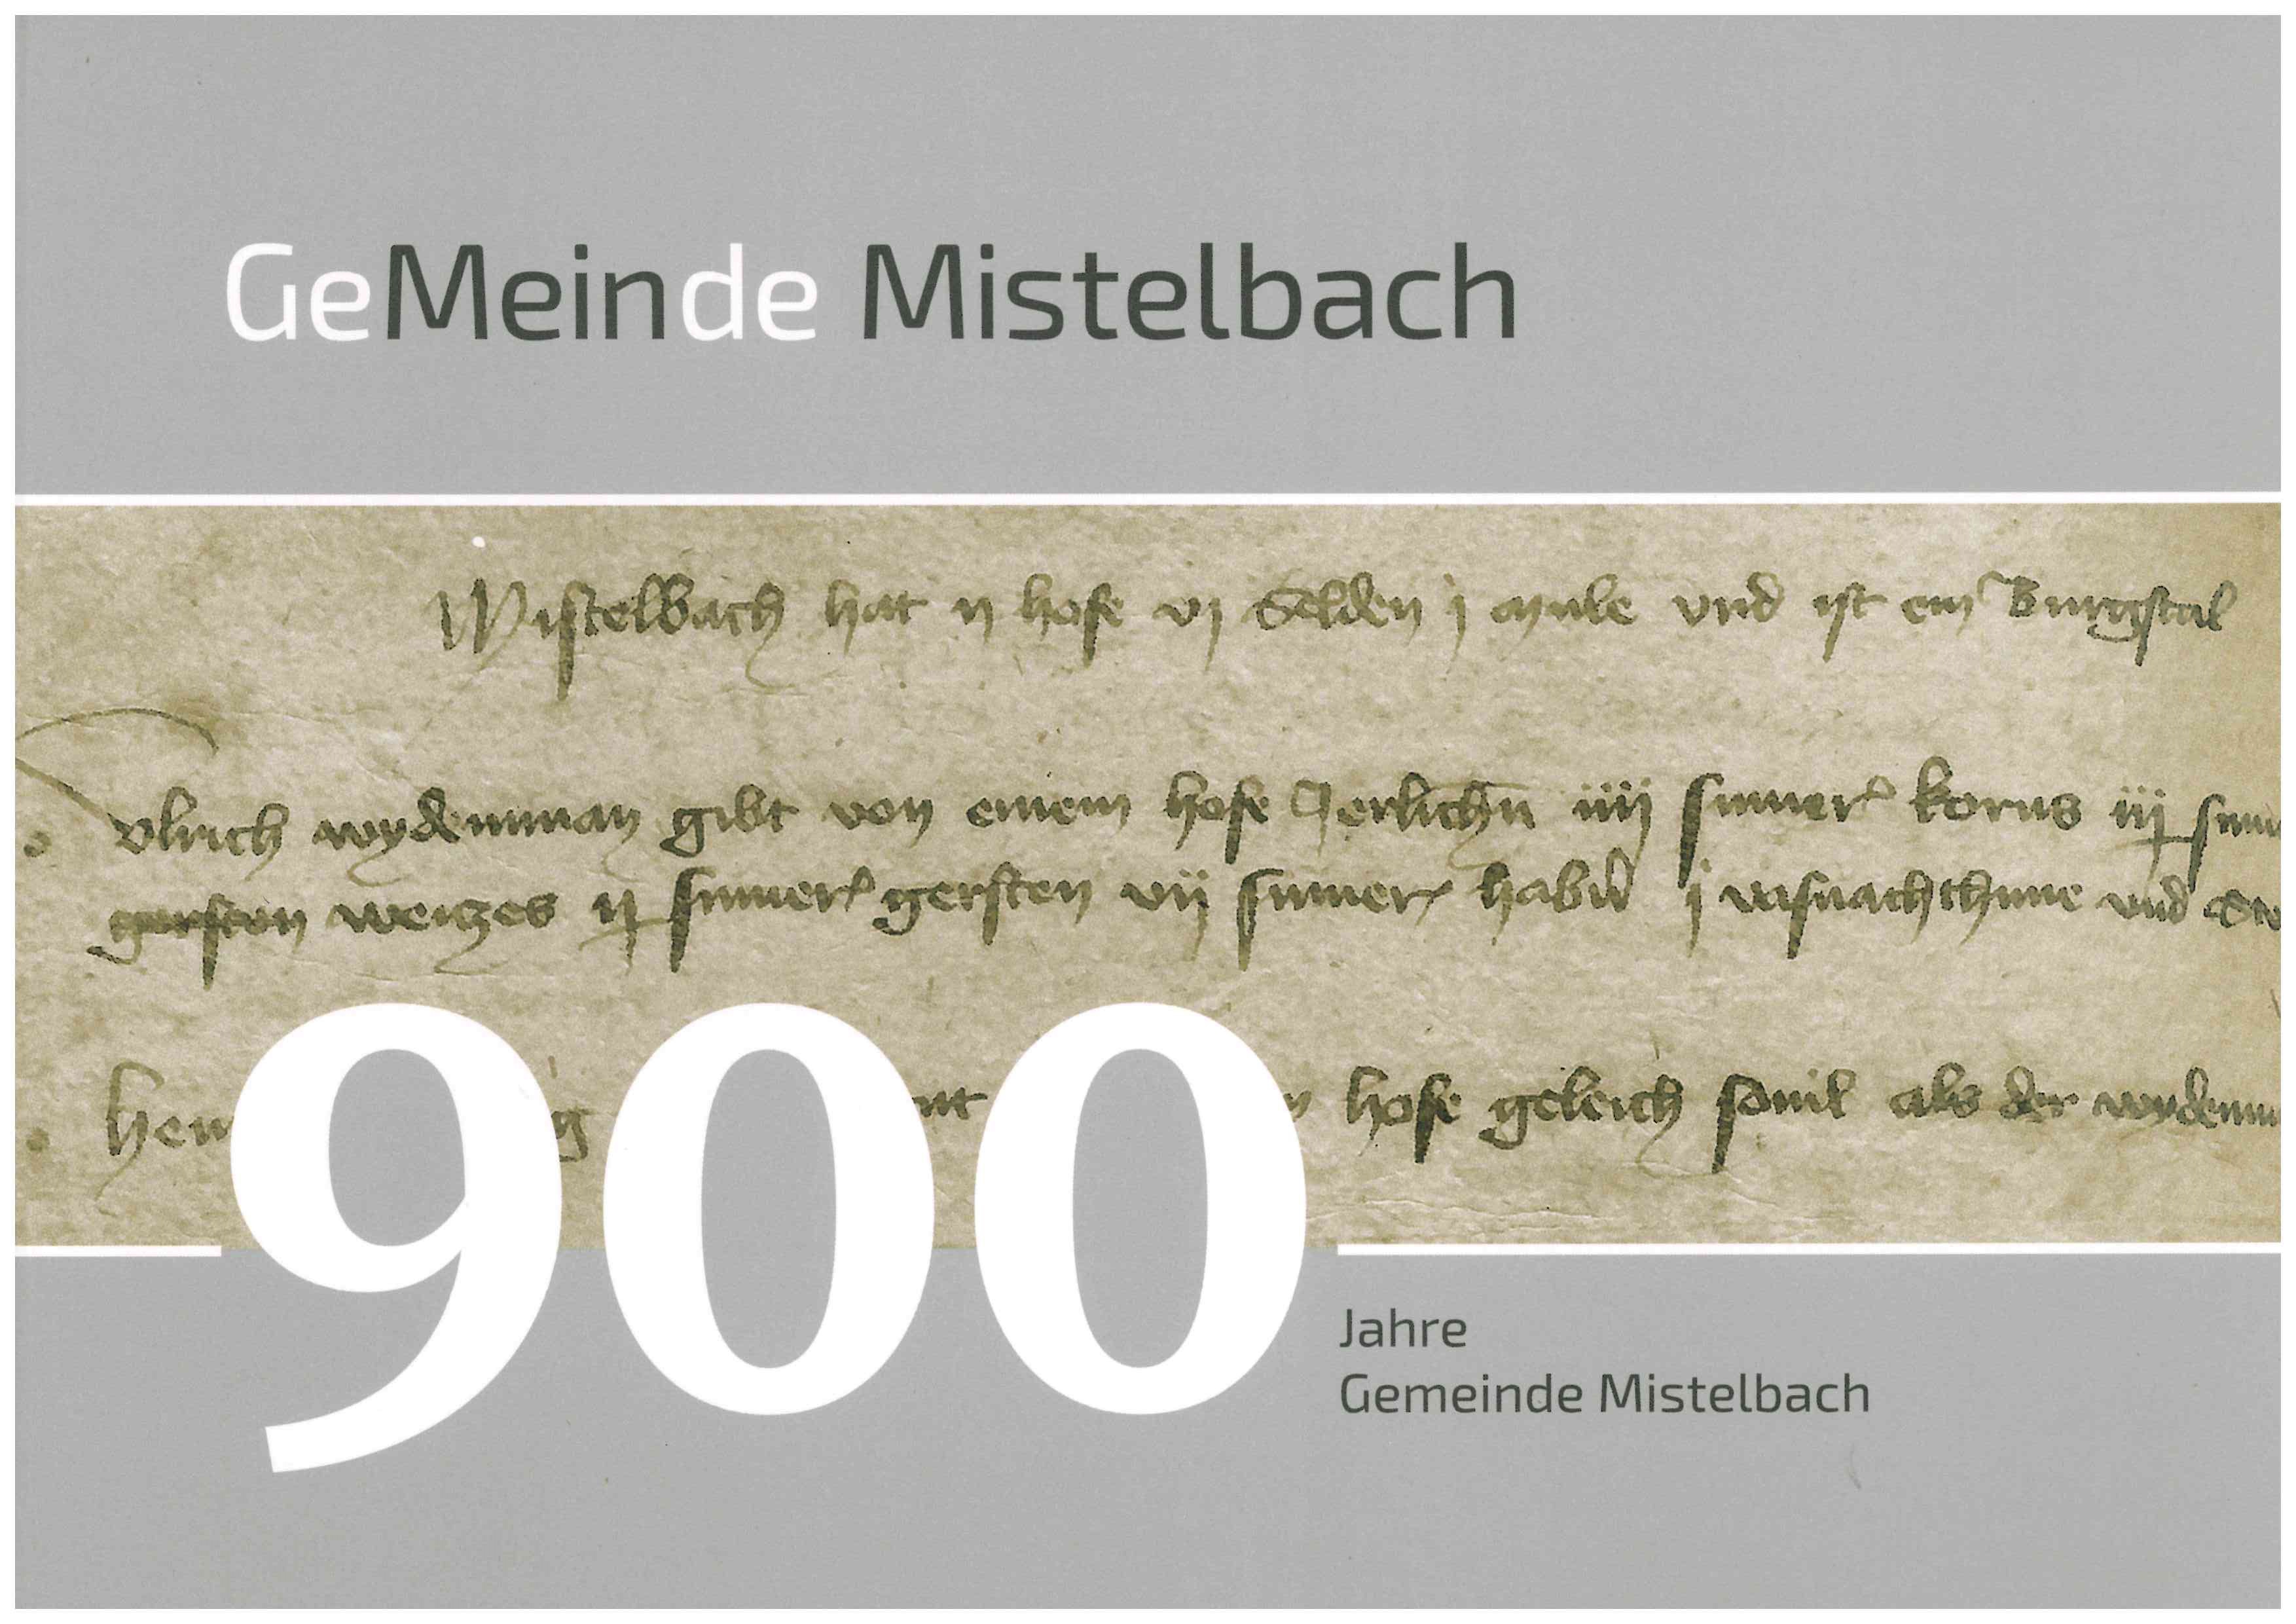 GeMeinde Mistelbach
Mistelbach hat ij hofe vj Selden j mule vnd ist ein Burgstal
vlrich wydenman gibt von einem hofe Jerlichn iiij sumer korns iij sum
gersten weitzes ij sumer gersten vij sumer habn j vasnachthune vnd
hofe geleich souil als der wydenm
900
Jahre
Gemeinde Mistelbach